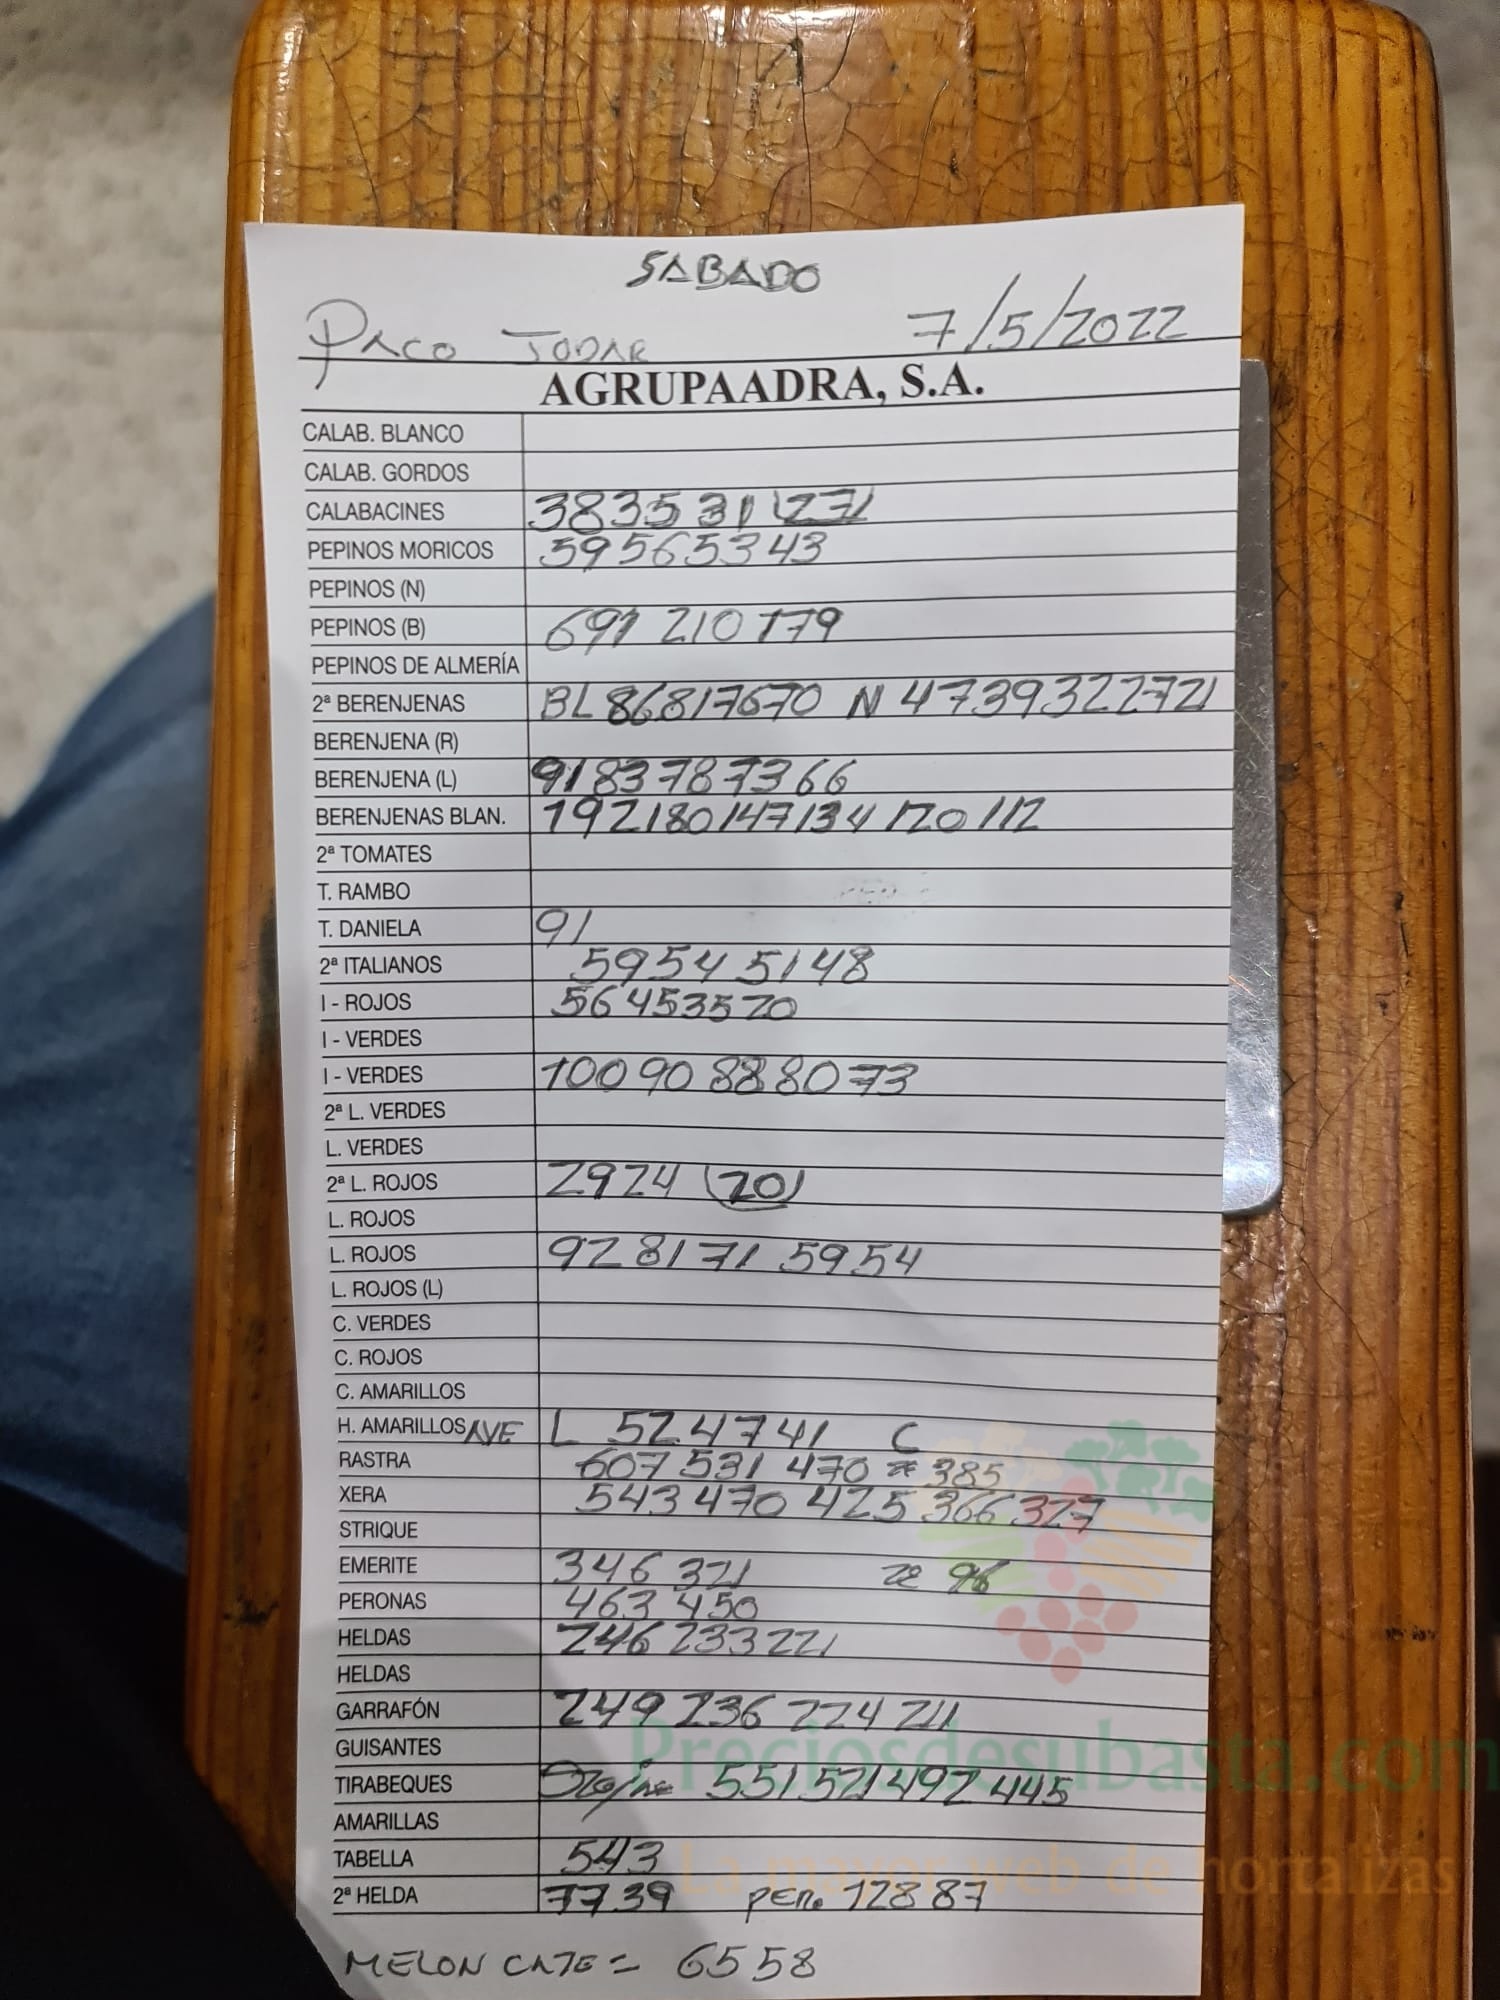 SABADO
PACO JODAR 7/5/2022
AGRUPAADRA, S.A.
CALAB. BLANCO
CALAB. GORDOS
CALABACINES 38 35 31 (27)
PEPINOS MORICOS 59 56 53 43
PEPINOS (N)
PEPINOS (B) 691 210 179
PEPINOS DE ALMERÍA
2ª BERENJENAS BL 86 81 76 70 N 47 39 32 27 21
BERENJENA (R)
BERENJENA (L) 91 83 78 73 66
BERENJENAS BLAN. 192 180 147 134 120 112
2ª TOMATES
T. RAMBO
T. DANIELA 91
2ª ITALIANOS 59 54 51 48
I - ROJOS 56 45 35 20
I - VERDES
I - VERDES 100 90 88 80 73
2ª L. VERDES
L. VERDES
2ª L. ROJOS 29 24 (20)
L. ROJOS
L. ROJOS 92 81 71 59 54
L. ROJOS (L)
C. VERDES
C. ROJOS
C. AMARILLOS
H. AMARILLOS AVE L 52 47 41 C
RASTRA 607 531 470 2ª 385
XERA 543 470 425 366 327
STRIQUE
EMERITE 346 321 2ª 96
PERONAS 463 450
HELDAS 246 233 221
HELDAS
GARRAFÓN 249 236 224 211
GUISANTES
TIRABEQUES 551 521 492 445
AMARILLAS
TABELLA 543
2ª HELDA 77 39 pero 128 87
MELON CATE = 65 58
Preciosdesubasta.com
La mayor web de hortalizas